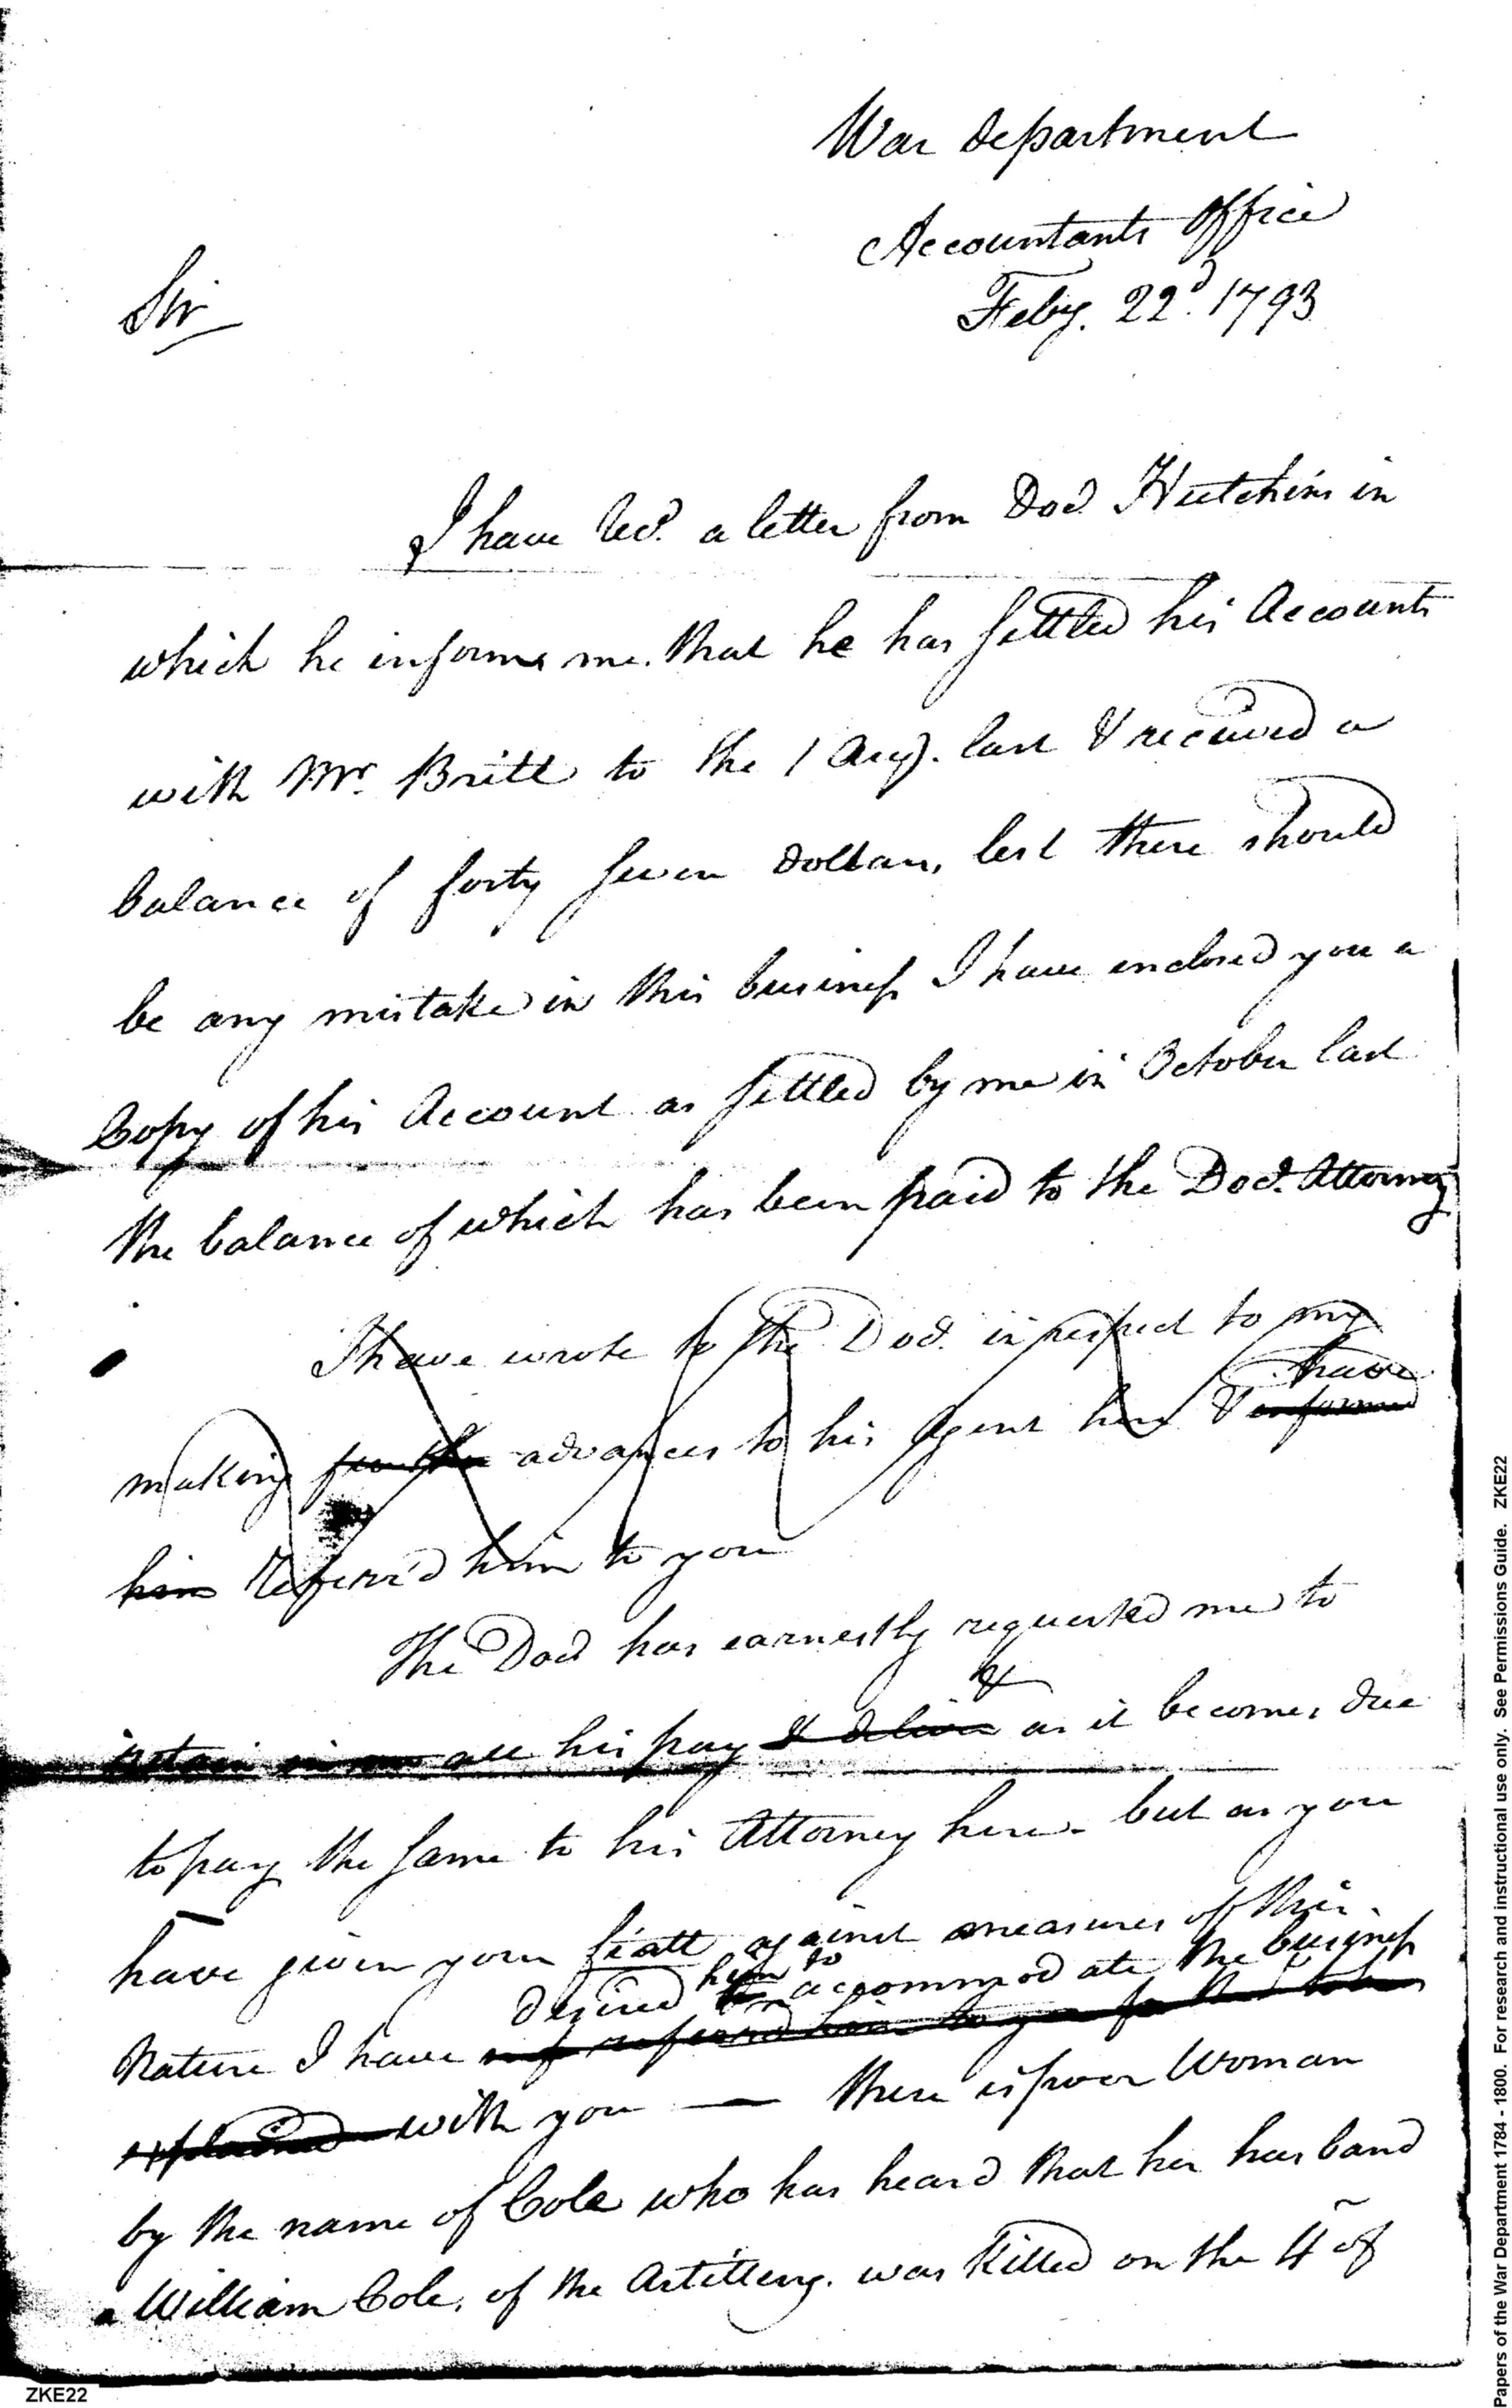 War department
Accountants Office
Feby. 22d. 1793
Sir
I have Recd. a letter from Doct. Hutchins in
which he informs me. that he has settled his Accounts
with Mr. Britt to the 1 Augt. last & received a
balance of forty seven dollars, lest there should
be any mistake in this business I have enclosed you a
Copy of his Account as settled by me in October last
the balance of which has been paid to the Doct. Attorney
I have wrote to the Doct. in respect to my
have
making further advances to his Agent here & informed
him Referr'd him to you
The Doct has earnestly requested me to
&
retain in my all his pay & deliver as it becomes due
to pay the same to his Attorney here - but as you
have given your fiatt against measures of this
desired him to accommodate the business
Nature I have referred him to you for the
explained with you — there is poor Woman
by the name of Cole who has heard that her husband
William Cole, of the Artillery. was Killed on the 4 of
ZKE22
Papers of the War Department 1784 - 1800. For research and instructional use only. See Permissions Guide. ZKE22